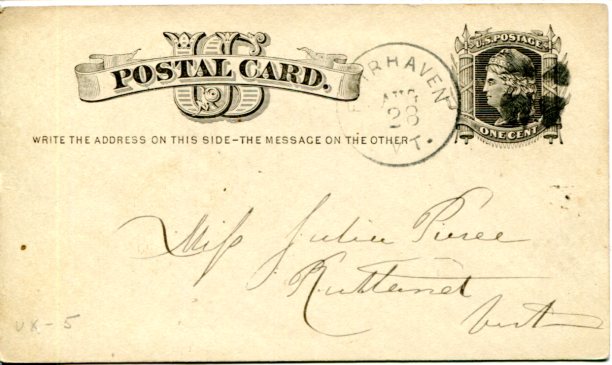 US
POSTAL CARD.
WRITE THE ADDRESS ON THIS SIDE—THE MESSAGE ON THE OTHER
FAIRHAVEN
AUG
28
VT.
U.S. POSTAGE
ONE CENT
Miss Julia Pierce
Rutland
Vert
UX-5